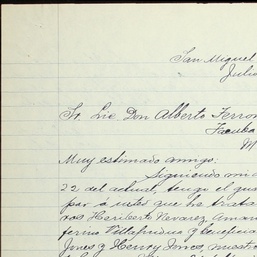 San Miguel
Julio
Sr. Lic Don Alberto Terron
Tacuba
M
Muy estimado amigo:
Siguiendo mi
22 del actual, tengo el gus
par á usted que he trata
nos Heriberto Nevarez, Aman
y Benefici
Jones y Henry Jones, nuestro